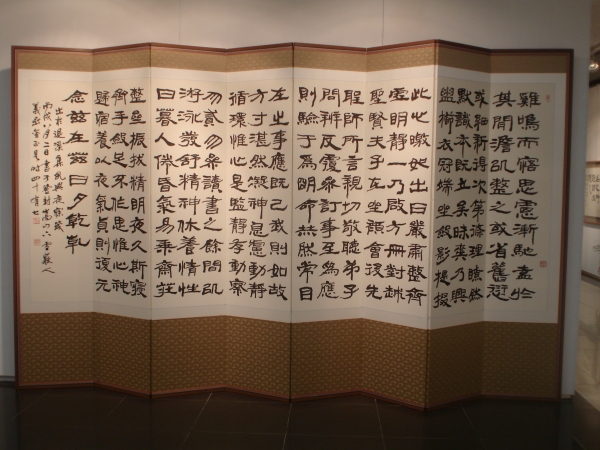 鷄鳴而寤思慮漸馳盍於
其間澹以整之或省舊愆
或紬新得次第條理瞭然
默識本旣立矣昧爽乃興
盥櫛衣冠端坐斂形提掇
此心皦如出日嚴肅整齊
虛明靜一乃啓方冊對越
聖賢夫子在坐顔曾後先
聖師所言親切敬聽弟子
問辨反覆參訂事至斯應
則驗于爲明命赫然常目
在之事應旣已我則如故
方寸湛然凝神息慮動靜
循環惟心是監靜存動察
勿貳勿參讀書之餘間以
游泳發舒精神休養情性
日暮人倦昏氣易乘齋莊
整齊振拔精明夜久斯寢
齊手斂足不作思惟心神
歸宿養以夜氣貞則復元
念玆在玆日夕乾乾
出於退溪集夙興夜寐箴
丙戌八月二日書于